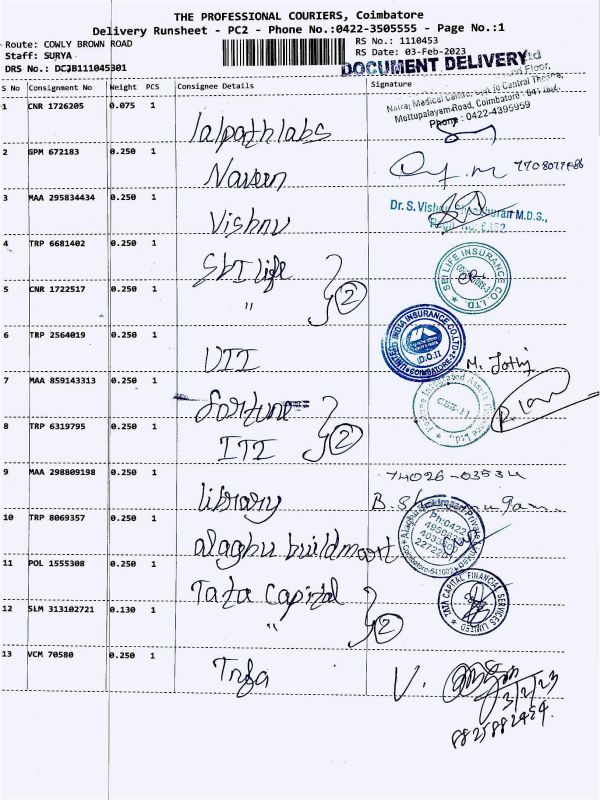 THE PROFESSIONAL COURIERS, Coimbatore
Delivery Runsheet - PC2 - Phone No.:0422-3505555 - Page No.:1
Route: COWLY BROWN ROAD
RS No.: 1110453
Staff: SURYA
RS Date: 03-Feb-2023
DRS No.: DCJB111045301
DOCUMENT DELIVERY
S No Consignment No Weight PCS Consignee Details Signature
Mettupalayam Road, Coimbatore
Phone : 0422-4395959
1 CNR 1726205 0.075 1 lalpathlabs
2 GPM 672183 0.250 1 Naveen
3 MAA 295834434 0.250 1 Vishnu
Dr. S. M.D.S.,
4 TRP 6681402 0.250 1 SBI life
SBI LIFE INSURANCE CO. LTD.
5 CNR 1722517 0.250 1 " 2
6 TRP 2564019 0.250 1 UII
UNITED INDIA INSURANCE CO.LTD
(D.O.1)
COIMBATORE
M. Jothi
7 MAA 859143313 0.250 1 fortune
8 TRP 6319795 0.250 1 ITI 2
9 MAA 298809198 0.250 1 library
74026-03534
10 TRP 8069357 0.250 1 alaghu buildmart
Ph:0422
Coimbatore-641002
11 POL 1555308 0.250 1 Tata Capital
TATA CAPITAL FINANCIAL SERVICES LIMITED
12 SLM 313102721 0.130 1 " 2
13 VCM 70580 0.250 1
V.
3/2/23